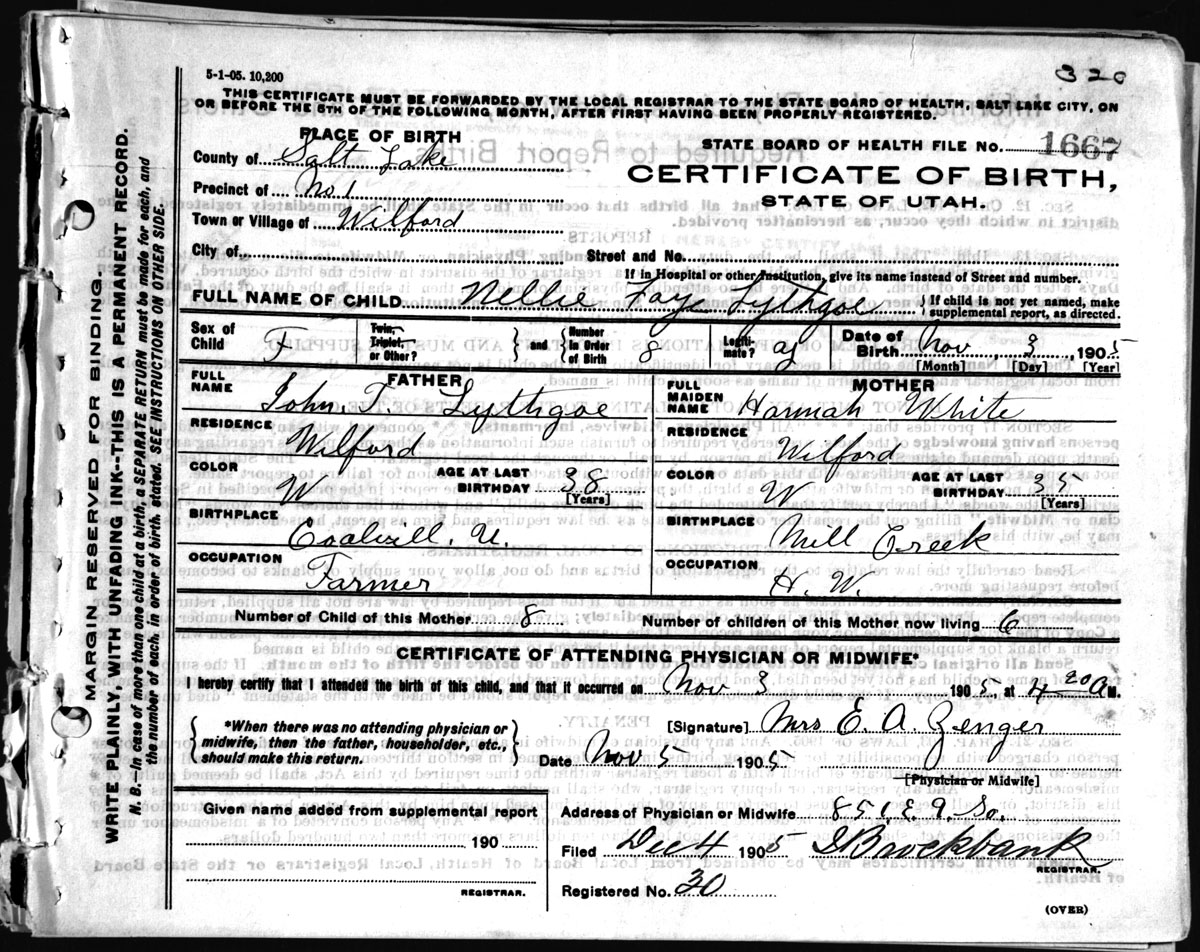 5-1-05. 10,200
320
THIS CERTIFICATE MUST BE FORWARDED BY THE LOCAL REGISTRAR TO THE STATE BOARD OF HEALTH, SALT LAKE CITY, ON
OR BEFORE THE 5TH OF THE FOLLOWING MONTH, AFTER FIRST HAVING BEEN PROPERLY REGISTERED.
PLACE OF BIRTH
County of Salt Lake
Precinct of No. 1
Town or Village of Wilford
City of
STATE BOARD OF HEALTH FILE NO. 1667
CERTIFICATE OF BIRTH,
STATE OF UTAH.
Street and No.
If in Hospital or other Institution, give its name instead of Street and number.
FULL NAME OF CHILD Nellie Faye Lythgoe { If child is not yet named, make supplemental report, as directed.
Sex of Child F Twin, Triplet, or Other? } and { Number In Order of Birth 8 Legiti-mate? Date of Birth Nov 3, 1905
[Month] [Day] [Year]
FATHER
FULL NAME John. T. Lythgoe
RESIDENCE Wilford
COLOR W AGE AT LAST BIRTHDAY 38
[Years]
BIRTHPLACE Coalvill. U.
OCCUPATION Farmer
MOTHER
FULL MAIDEN NAME Hannah White
RESIDENCE Wilford
COLOR W AGE AT LAST BIRTHDAY 35
[Years]
BIRTHPLACE Mill Creek
OCCUPATION H. W.
Number of Child of this Mother 8 Number of children of this Mother now living 6
CERTIFICATE OF ATTENDING PHYSICIAN OR MIDWIFE*
I hereby certify that I attended the birth of this child, and that it occurred on Nov 3 1905, at 4 20 A M.
{ *When there was no attending physician or midwife, then the father, householder, etc., should make this return. }
[Signature] Mrs E. A. Zenger
Date Nov 5 1905
[Physician or Midwife]
Given name added from supplemental report
190
REGISTRAR.
Address of Physician or Midwife 851. E. 9. So.
Filed Dec 4 1905 Brockbank
REGISTRAR.
Registered No. 30
(OVER)
MARGIN RESERVED FOR BINDING.
WRITE PLAINLY, WITH UNFADING INK--THIS IS A PERMANENT RECORD.
N. B.--In case of more than one child at a birth, a SEPARATE RETURN must be made for each, and
the number of each, in order of birth, stated. SEE INSTRUCTIONS ON OTHER SIDE.